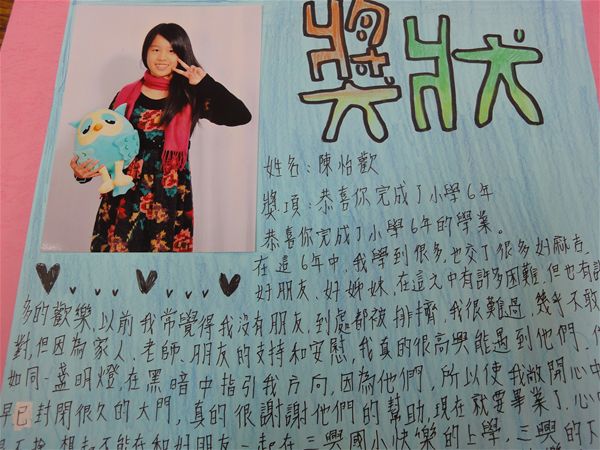 獎狀
姓名:陳怡歡
獎項:恭喜你完成了小學6年
恭喜你完成了小學6年的學業。
在這6年中,我學到很多,也交了很多好麻吉、
好朋友、好姊妹,在這之中有許多困難,但也有許
多的歡樂,以前我常覺得我沒有朋友,到處都被排擠,我很難過,幾乎不敢
對,但因為家人、老師、朋友的支持和安慰,我真的很高興能遇到他們、
如同一盞明燈,在黑暗中指引我方向,因為他們,所以使我敞開心中
早已封閉很久的大門,真的很謝謝他們的幫助,現在就要畢業了,心中
不捨,想起不能在和好朋友一起在三興國小快樂的上學,三興的